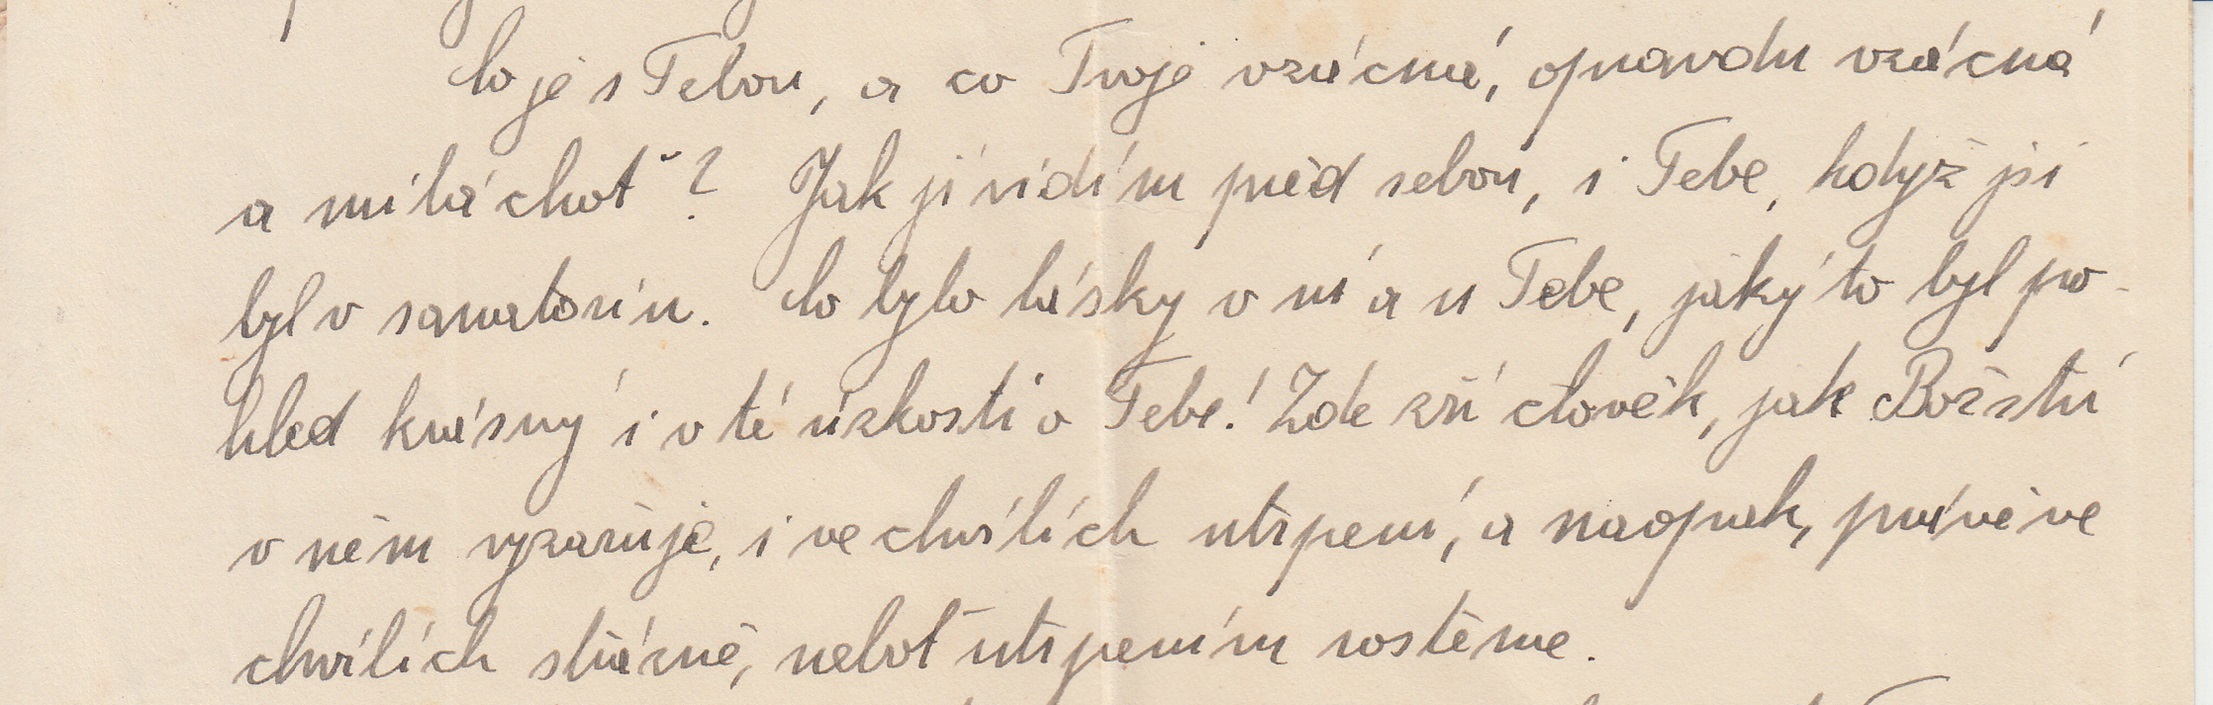 Co je s Tebou, a co Tvoje vzácná, opravdu vzácná
a milá choť? Jak ji vidím před sebou, i Tebe, když jsi
byl v sanatoriu. Co bylo lásky v ní a u Tebe, jaký to byl po-
hled krásný i v té úzkosti o Tebe! Zde zří člověk, jak Božství
v něm vyzařuje, i ve chvílích utrpení, a naopak, právě ve
chvílích strázně, neboť utrpením rosteme.